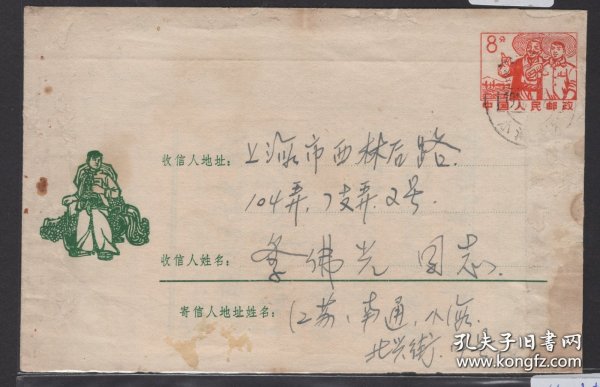 8分
中国人民邮政
收信人地址: 上海市西林后路
104弄7支弄2号
收信人姓名: 季佛光 同志
寄信人地址姓名: 江苏、南通、小海
北兴街
孔夫子旧书网
www.kongfz.com